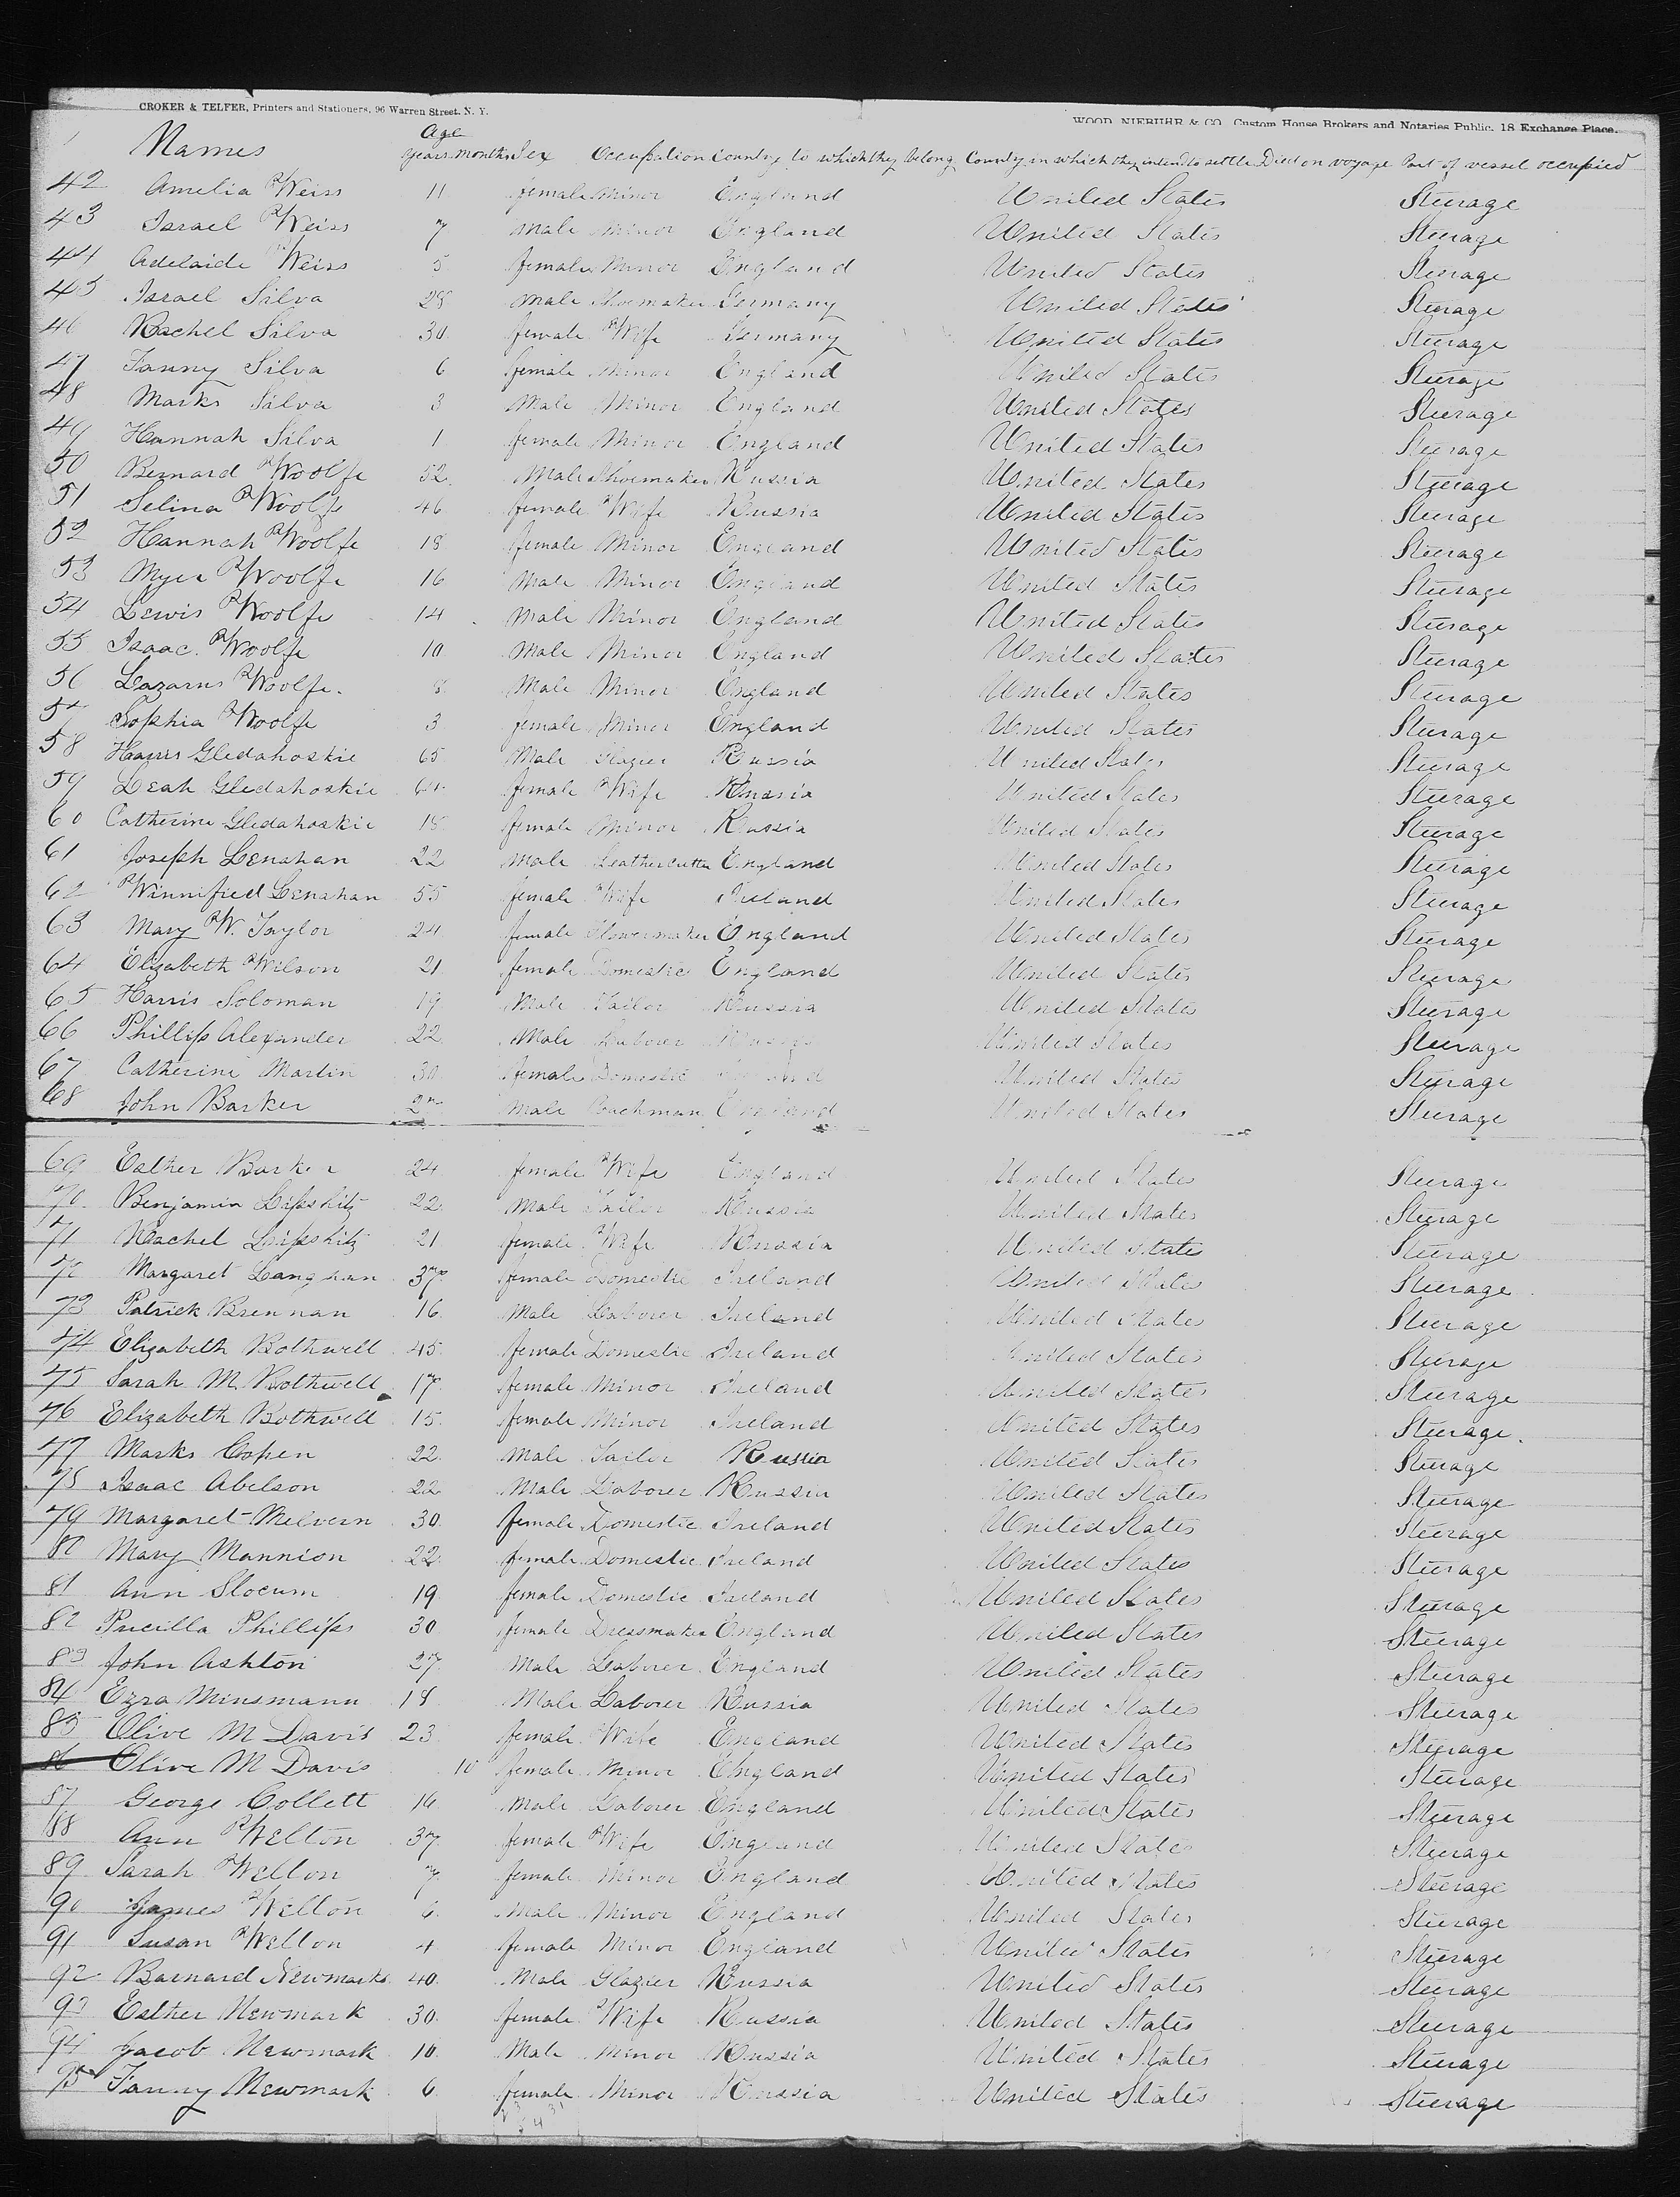 CROKER & TELFER, Printers and Stationers, 96 Warren Street. N. Y.
WOOD, NIEBUHR & CO. Custom House Brokers and Notaries Public, 18 Exchange Place.
Age
Names years months Sex Occupation Country to which they belong Country in which they intend to settle Died on voyage Part of vessel occupied
42 Amelia Weiss 11 female Minor England United States Steerage
43 Israel Weiss 7 Male Minor England United States Steerage
44 Adelaide Weiss 5 female Minor England United States Steerage
45 Israel Silva 28 Male Shoemaker Germany United States Steerage
46 Rachel Silva 30 female Wife Germany United States Steerage
47 Fanny Silva 6 female Minor England United States Steerage
48 Marks Silva 3 Male Minor England United States Steerage
49 Hannah Silva 1 female Minor England United States Steerage
50 Bernard Woolfe 52 Male Shoemaker Russia United States Steerage
51 Selina Woolfe 46 female Wife Russia United States Steerage
52 Hannah Woolfe 18 female Minor England United States Steerage
53 Myer Woolfe 16 Male Minor England United States Steerage
54 Lewis Woolfe 14 Male Minor England United States Steerage
55 Isaac. Woolfe 10 Male Minor England United States Steerage
56 Lazarus Woolfe. 8 Male Minor England United States Steerage
57 Sophia Woolfe 3 female Minor England United States Steerage
58 Harris Gledahoskie 65 Male Glazier Russia United States Steerage
59 Leah Gledahoskie female Wife Russia United States Steerage
60 Catherine Gledahoskie 18 female Minor Russia United States Steerage
61 Joseph Lenahan 22 Male Leathercutter England United States Steerage
62 Winnified Lenahan 55 female Wife Ireland United States Steerage
63 Mary W. Taylor 24 female Flowermaker England United States Steerage
64 Elizabeth Wilson 21 female Domestic England United States Steerage
65 Harris Soloman 19 Male Tailor Russia United States Steerage
66 Phillip Alexander 22 Male Laborer Russia United States Steerage
67 Catherine Martin 30 female Domestic United States Steerage
68 John Barker Male Coachman England United States Steerage
69 Esther Barker 24 female Wife England United States Steerage
70 Benjamin Lipshitz 22 Male Tailor Russia United States Steerage
71 Rachel Lipshitz 21 female Wife Russia United States Steerage
72 Margaret Langhan 37 female Domestic Ireland United States Steerage
73 Patrick Brennan 16 Male Laborer Ireland United States Steerage
74 Elizabeth Bothwell 45 female Domestic Ireland United States Steerage
75 Sarah M Bothwell 17 female Minor Ireland United States Steerage
76 Elizabeth Bothwell 15 female Minor Ireland United States Steerage.
77 Marks Copen 22 Male Tailor Russia United States Steerage
78 Isaac Abelson 22 Male Laborer Russia United States Steerage
79 Margaret Melvern 30 female Domestic Ireland United States Steerage
80 Mary Mannion 22 female Domestic Ireland United States Steerage
81 Ann Slocum 19 female Domestic Ireland United States Steerage
82 Pricilla Phillips 30 female Dressmaker England United States Steerage
83 John Ashton 27 Male Laborer England United States Steerage
84 Ezra Minsmann 18 Male Laborer Russia United States Steerage
85 Olive M Davis 23 female Wife England United States Steerage
86 Olive M Davis 10 female Minor England United States Steerage
87 George Collett 16 Male Laborer England United States Steerage
88 Ann Welton 37 female Wife England United States Steerage
89 Sarah Welton 7 female Minor England United States Steerage
90 James Welton 6 Male Minor England United States Steerage
91 Susan Welton 4 female Minor England United States Steerage
92 Barnard Newmarks 40 Male Glazier Russia United States Steerage
93 Esther Newmark 30 female Wife Russia United States Steerage
94 Jacob Newmark 10 Male Minor Russia United States Steerage
95 Fanny Newmark 6 female Minor Russia United States Steerage